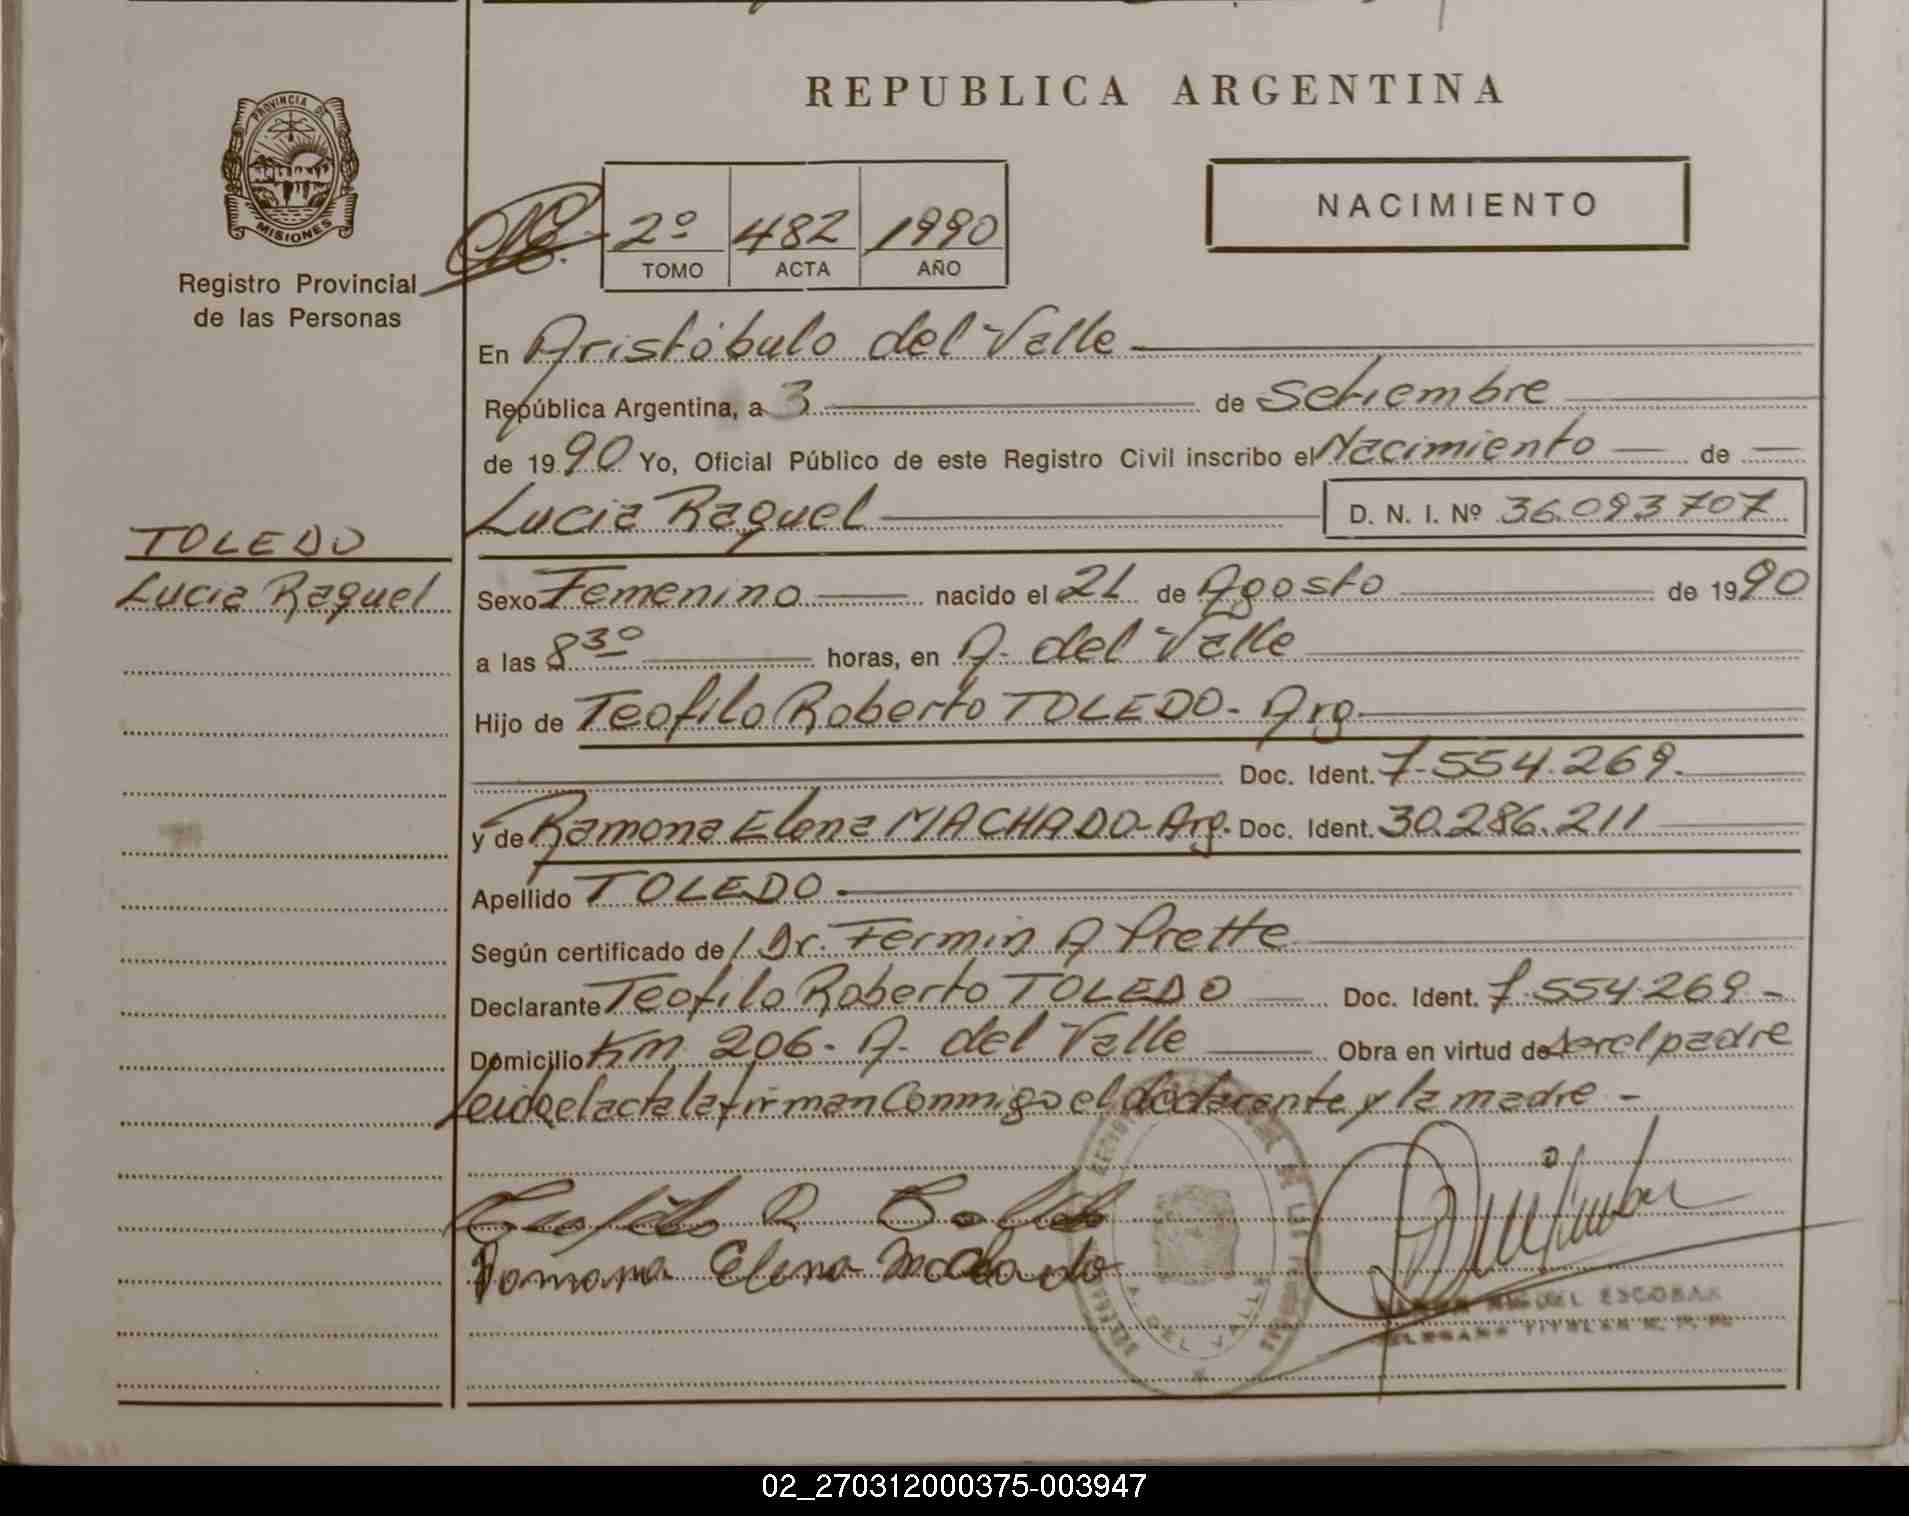 REPUBLICA ARGENTINA
PROVINCIA DE
MISIONES
Registro Provincial
de las Personas
2º 482 1990
TOMO ACTA AÑO
NACIMIENTO
En Aristóbulo del Valle
República Argentina, a 3 de Setiembre
de 1990 Yo, Oficial Público de este Registro Civil inscribo el Nacimiento de
Lucia Raquel D. N. I. Nº 36.093.707
TOLEDO
Lucia Raquel
Sexo Femenino nacido el 21 de Agosto de 1990
a las 8 30 horas, en A. del Valle
Hijo de Teofilo Roberto TOLEDO - Arg.
Doc. Ident. 7.554.269.
y de Ramona Elena MACHADO - Arg. Doc. Ident. 30.286.211
Apellido TOLEDO
Según certificado de / Dr. Fermin A Prette
Declarante Teofilo Roberto TOLEDO Doc. Ident. 7.554.269 -
Domicilio Km 206 - A. del Valle Obra en virtud de ser el padre
Leido el acta la firman conmigo el declarante y la madre -
Ramona Elena Machado
A. DEL VALLE
MIGUEL ESCOBAR
TITULAR R. P. P.
02_270312000375-003947